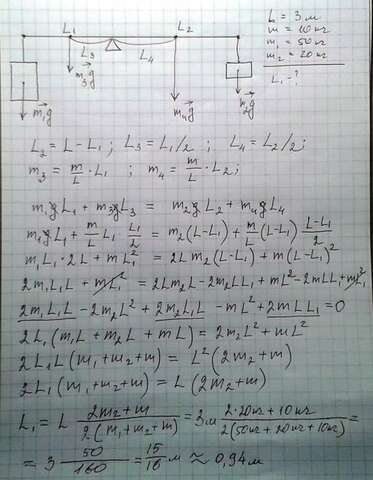 L = 3 м
m = 10 кг
m₁ = 50 кг
m₂ = 20 кг
L₁ - ?
L₁ L₂
L₃ L₄
m₃g m₄g
m₁g m₂g
L₂ = L - L₁ ; L₃ = L₁/2 ; L₄ = L₂/2 ;
m₃ = m/L · L₁ ; m₄ = m/L · L₂ ;
m₁gL₁ + m₃gL₃ = m₂gL₂ + m₄gL₄
m₁gL₁ + m/L L₁ · L₁/2 = m₂(L-L₁) + m/L (L-L₁) (L-L₁)/2
m₁L₁·2L + mL₁² = 2Lm₂(L-L₁) + m(L-L₁)²
2m₁L₁L + mL₁² = 2Lm₂L - 2m₂LL₁ + mL² - 2mLL₁ + mL₁²
2m₁L₁L - 2m₂L² + 2m₂L₁L - mL² + 2mLL₁ = 0
2L₁(m₁L + m₂L + mL) = 2m₂L² + mL²
2L₁L(m₁ + m₂ + m) = L²(2m₂ + m)
2L₁(m₁ + m₂ + m) = L(2m₂ + m)
L₁ = L (2m₂ + m)/(2(m₁ + m₂ + m)) = 3м (2·20кг + 10кг)/(2(50кг + 20кг + 10кг)) =
= 3 50/160 = 15/16 м ≈ 0,94 м